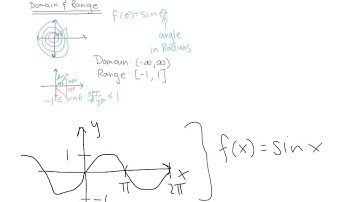 Domain & Range:
f(θ)=sinθ
angle
in Radians
Domain: (-∞,∞)
Range: [-1, 1]
-1 ≤ sinθ = opp/hyp ≤ 1
y
1
f(x) = sin x
π
x
2π
-1